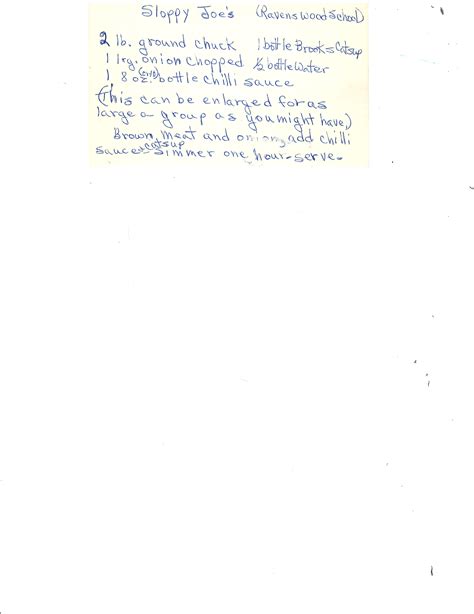 Sloppy Joe's (Ravenswood School)
2 lb. ground chuck 1 bottle Brooks Catsup
1 lrg. onion chopped ½ bottle water
1 8 oz. bottle chilli sauce
(This can be enlarged for as
large a group as you might have.)
Brown meat and onion, add chilli
sauce catsup simmer one hour - serve -